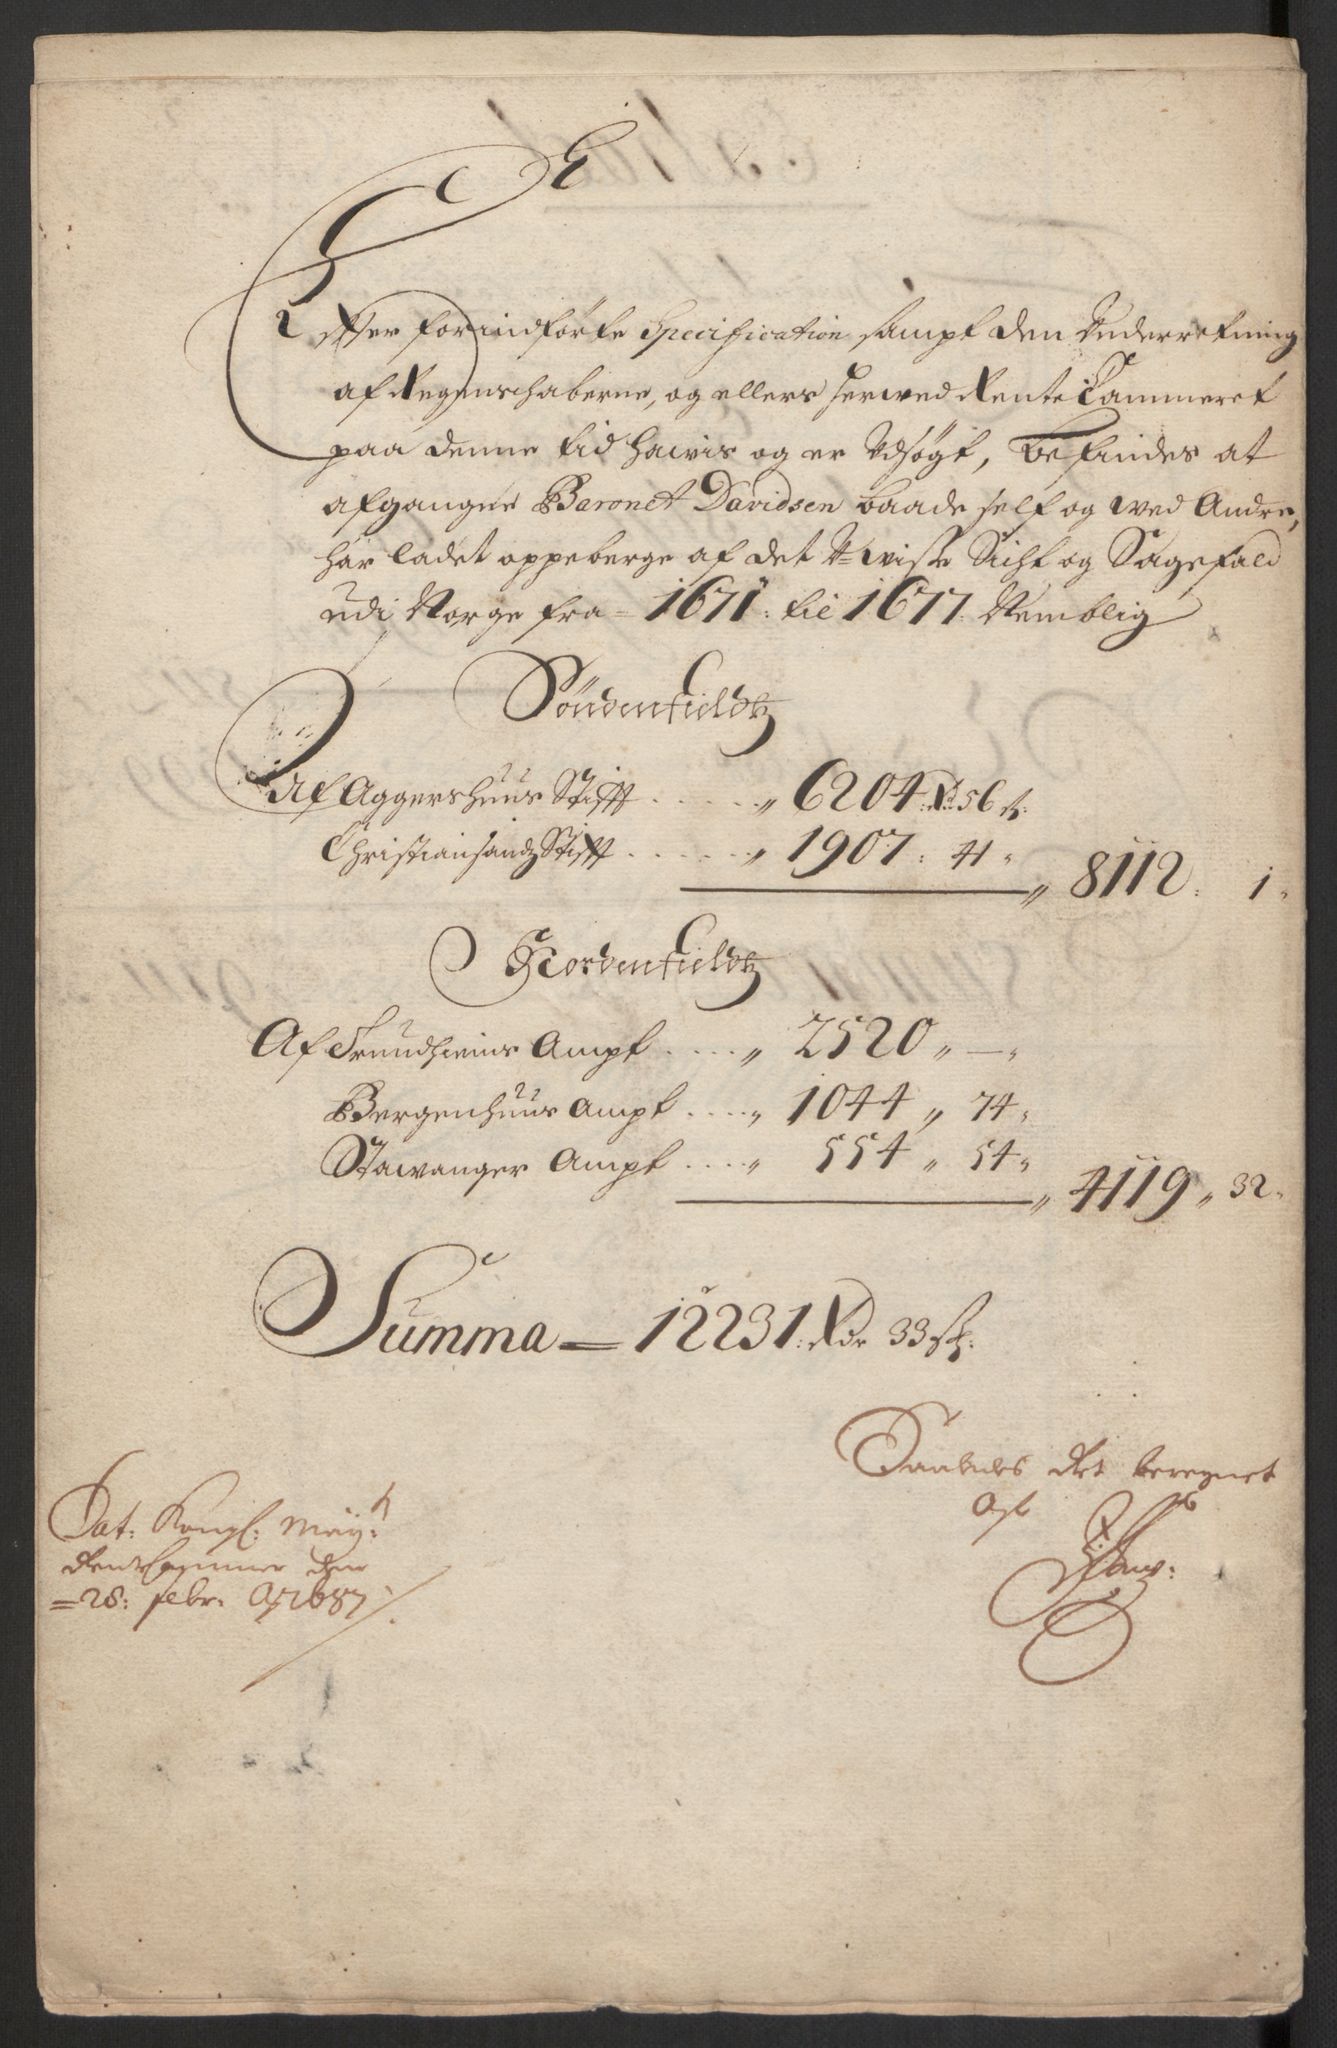 E
Effter forindførte Specification sampt den Underretning
af Regenschaberne, og ellers herwed Rente Cammeret
paa denne tid hawis og er Udsøgt, befindes at
afgangne Baronet Davidsen baade self og wed Andre,
har ladet oppeberge af det U-wisse Sicht og Sagefald
udi Norge fra - 1671: til 1677. Nemblig
Søndenfieldtz
Af Aggershuus Stifft . . . . . „ 6204 Rd 56 s:
Christiansandtz Stifft . . . . . „ 1907: 41 „
„ 8112: 1 „
Nordenfieldtz
Af Trundhiems Ampt . . . . „ 2520 „ — „
Bergenhuus Ampt . . . . „ 1044 „ 74 „
Stawanger Ampt . . . . „ 554 „ 54 „
„ 4119 „ 32 „
Summa = 12231. Rdr 33 sk.
Saaledes det beregnet
Af
Dat: Kongl: May:
Rentecammer den
= 28: febr: Ao 1687